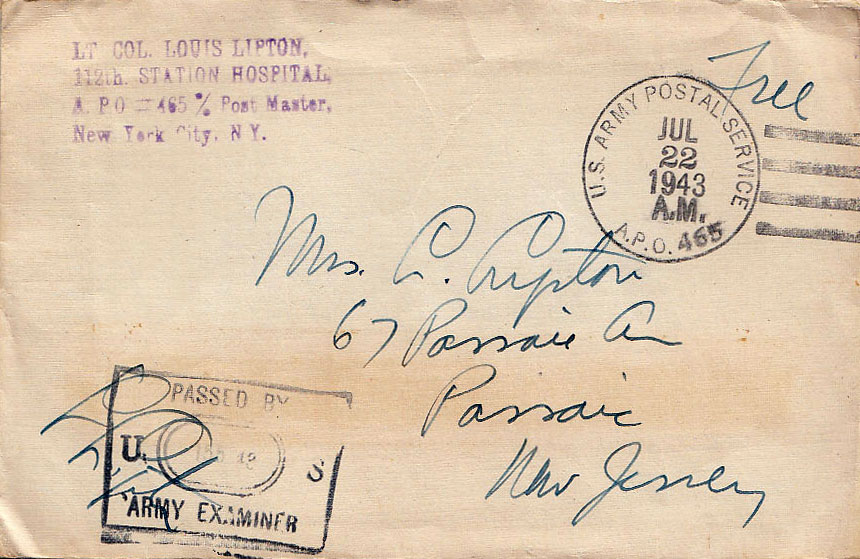 LT COL. LOUIS LIPTON,
112th. STATION HOSPITAL,
A. P O # 465 % Post Master,
New York City, N Y.
Free
U.S. ARMY POSTAL SERVICE
JUL
22
1943
A.M.
A.P.O. 465
Mrs. L. Lipton
67 Passaic Av
Passaic
New Jersey
PASSED BY
U. S
ARMY EXAMINER